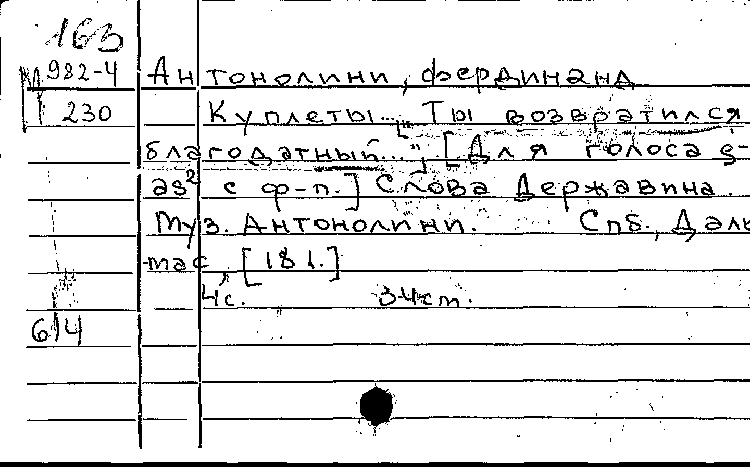 163
М 982-4 Антонолини, Фердинанд
230 Куплеты... „Ты возвратился
благодатный...", [Для голоса g-
as² с ф-п.] Слова Державина.
Муз. Антонолини. Спб., Даль-
мас, [181.]
4с. 34cm.
614